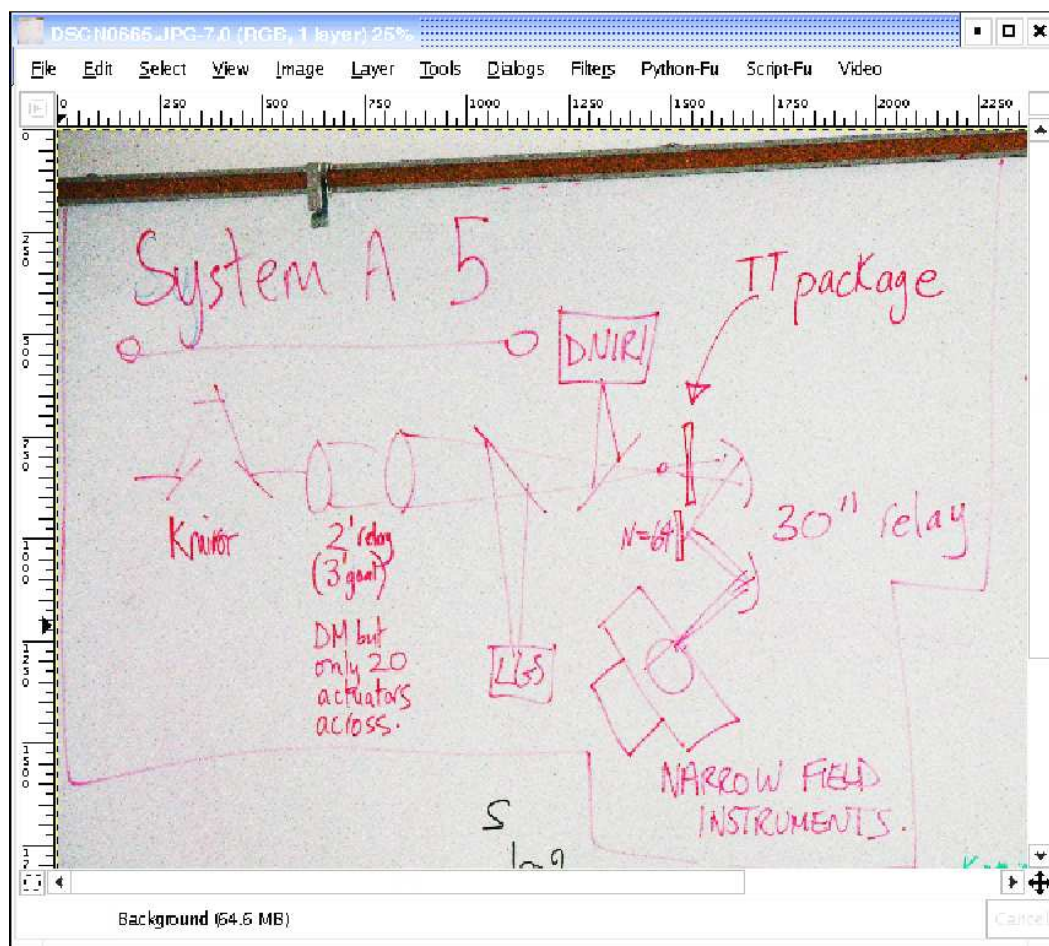 DSCN0665.JPG-7.0 (RGB, 1 layer) 25%
File Edit Select View Image Layer Tools Dialogs Filters Python-Fu Script-Fu Video
0 250 500 750 1000 1250 1500 1750 2000 2250
0
250
500
750
1000
1250
1500
System A 5
TT package
DNIRI
N=64
30" relay
Kmirror
2' relay
(3' goal)
DM but
only 20
actuators
across.
LGS
NARROW FIELD
INSTRUMENTS.
S
Background (64.6 MB)
Cancel